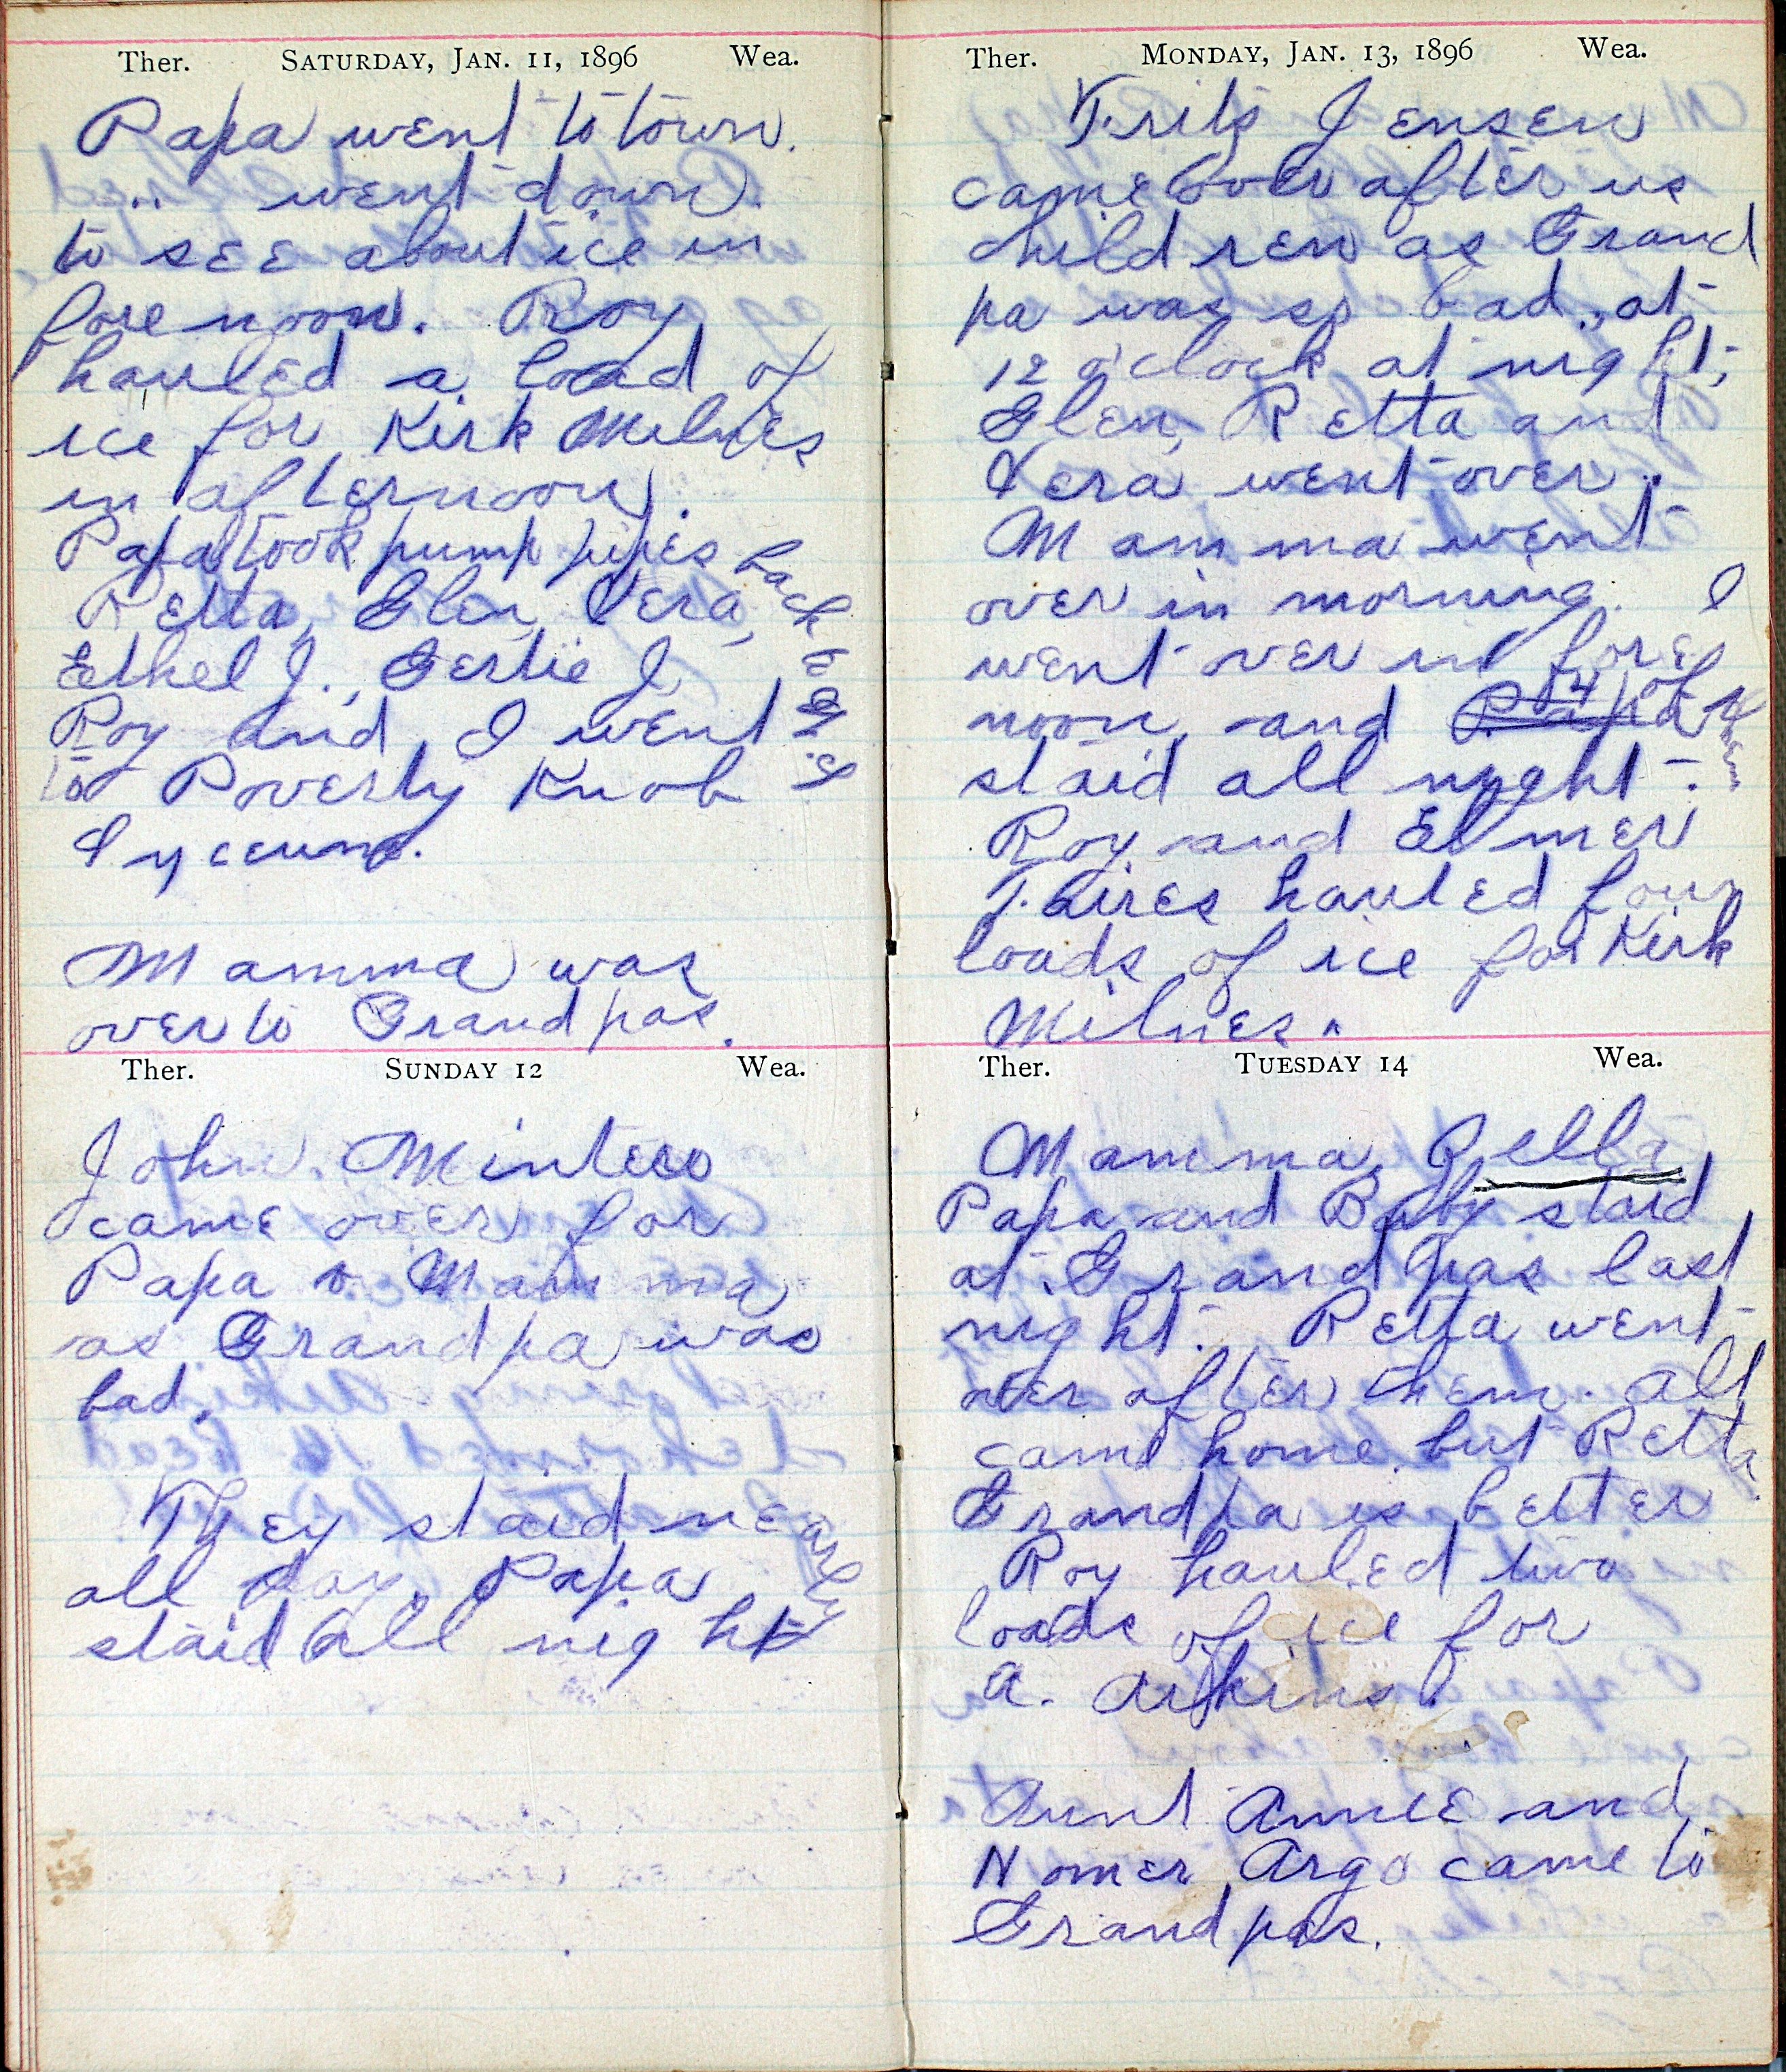 Ther. SATURDAY, JAN. 11, 1896 Wea.
Papa went to town.
" went down
to see about ice in
fore noon. Roy
hauled a load of
ice for Kirk Milnes
in afternoon.
Papa took pump pipes back to
Retta, Glen, Vera,
Ethel J., Gertie J,
Roy and I went
to Poverty Knob
Lyceum.
Mamma was
over to Grandpas.
Ther. SUNDAY 12 Wea.
John Minteer
came over for
Papa & Mamma
as Grandpa was
bad.
They staid nearly
all day, Papa
staid all night
Ther. MONDAY, JAN. 13, 1896 Wea.
Frits Jensen
came over after us
children as Grand
pa was so bad, at
12 o'clock at night,
Glen, Retta and
Vera went over.
Mamma went
over in morning. I
went over in fore
noon, and 4 of them
staid all night.
Roy and Elmer
hauled four
loads of ice for Kirk
Milnes.
Ther. TUESDAY 14 Wea.
Mamma, Zella,
Papa, and Baby staid
at Grandpas last
night. Retta went
over after them. All
came home but Retta.
Grandpa is better
Roy hauled two
loads of ice for
A. Aikins.
Aunt Annie and
Homer Argo came to
Grandpas.